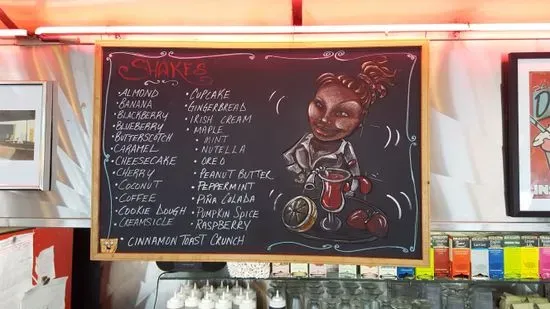 SHAKES
• ALMOND
• BANANA
• BLACKBERRY
• BLUEBERRY
• BUTTERSCOTCH
• CARAMEL
• CHEESECAKE
• CHERRY
• COCONUT
• COFFEE
• COOKIE DOUGH
• CREAMSICLE
• CINNAMON TOAST CRUNCH
• CUPCAKE
• GINGERBREAD
• IRISH CREAM
• MAPLE
• MINT
• NUTELLA
• OREO
• PEANUT BUTTER
• PEPPERMINT
• PIÑA COLADA
• PUMPKIN SPICE
• RASPBERRY